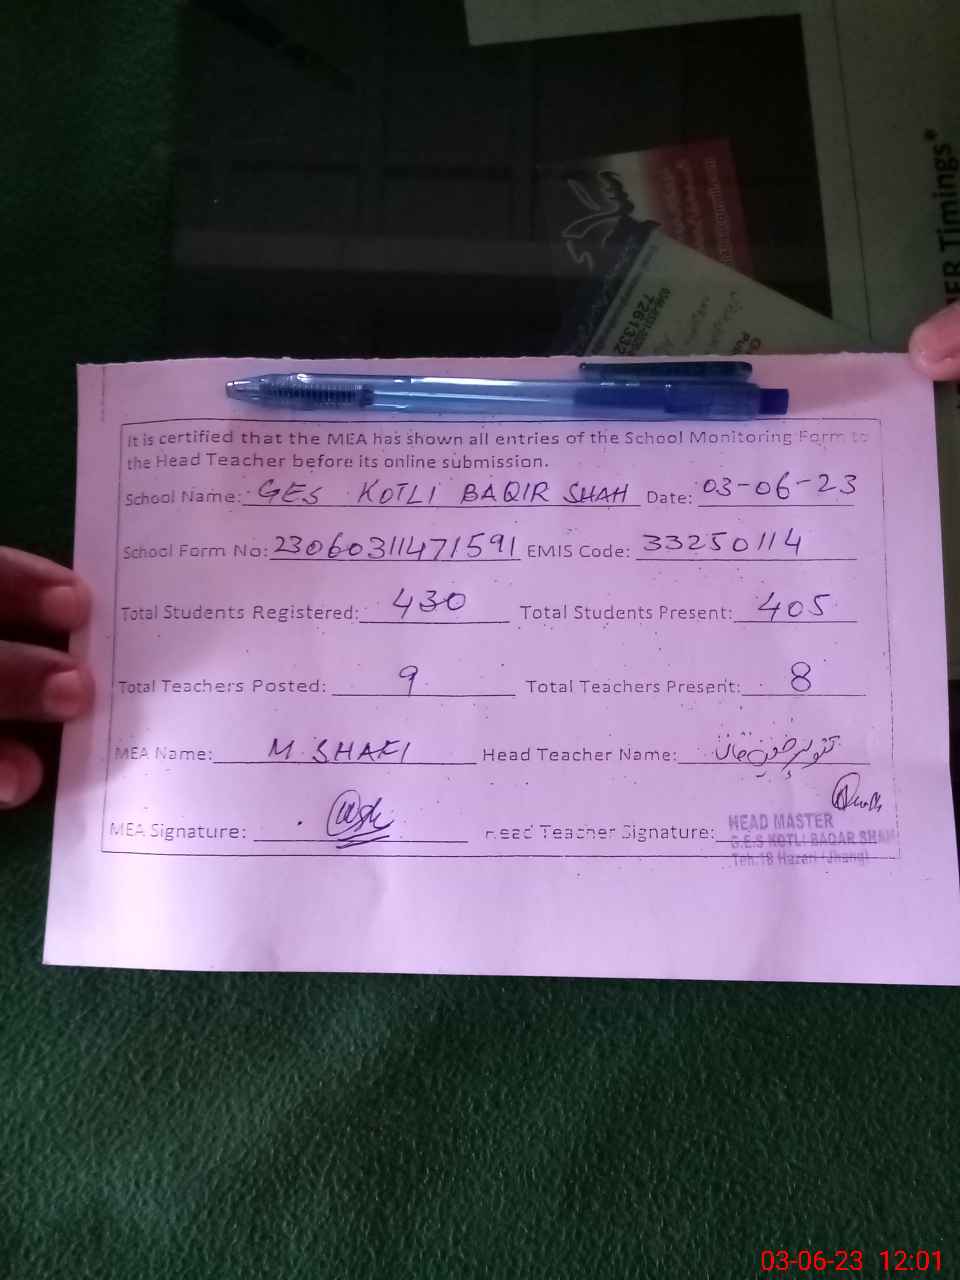 ER Timings"
It is certified that the MEA has shown all entries of the School Monitoring Form to
the Head Teacher before its online submission.
School Name: GES KOTLI BAQIR SHAH Date: 03-06-23
School Form No: 23060311471591 EMIS Code: 33250114
Total Students Registered: 430 Total Students Present: 405
Total Teachers Posted: 9 Total Teachers Present: 8
MEA Name: M. SHAFI Head Teacher Name:
MEA Signature: Head Teacher Signature:
HEAD MASTER
G.E.S KOTLI BAQAR SHAH
Teh:18 Hazari (Jhang)
03-06-23 12:01